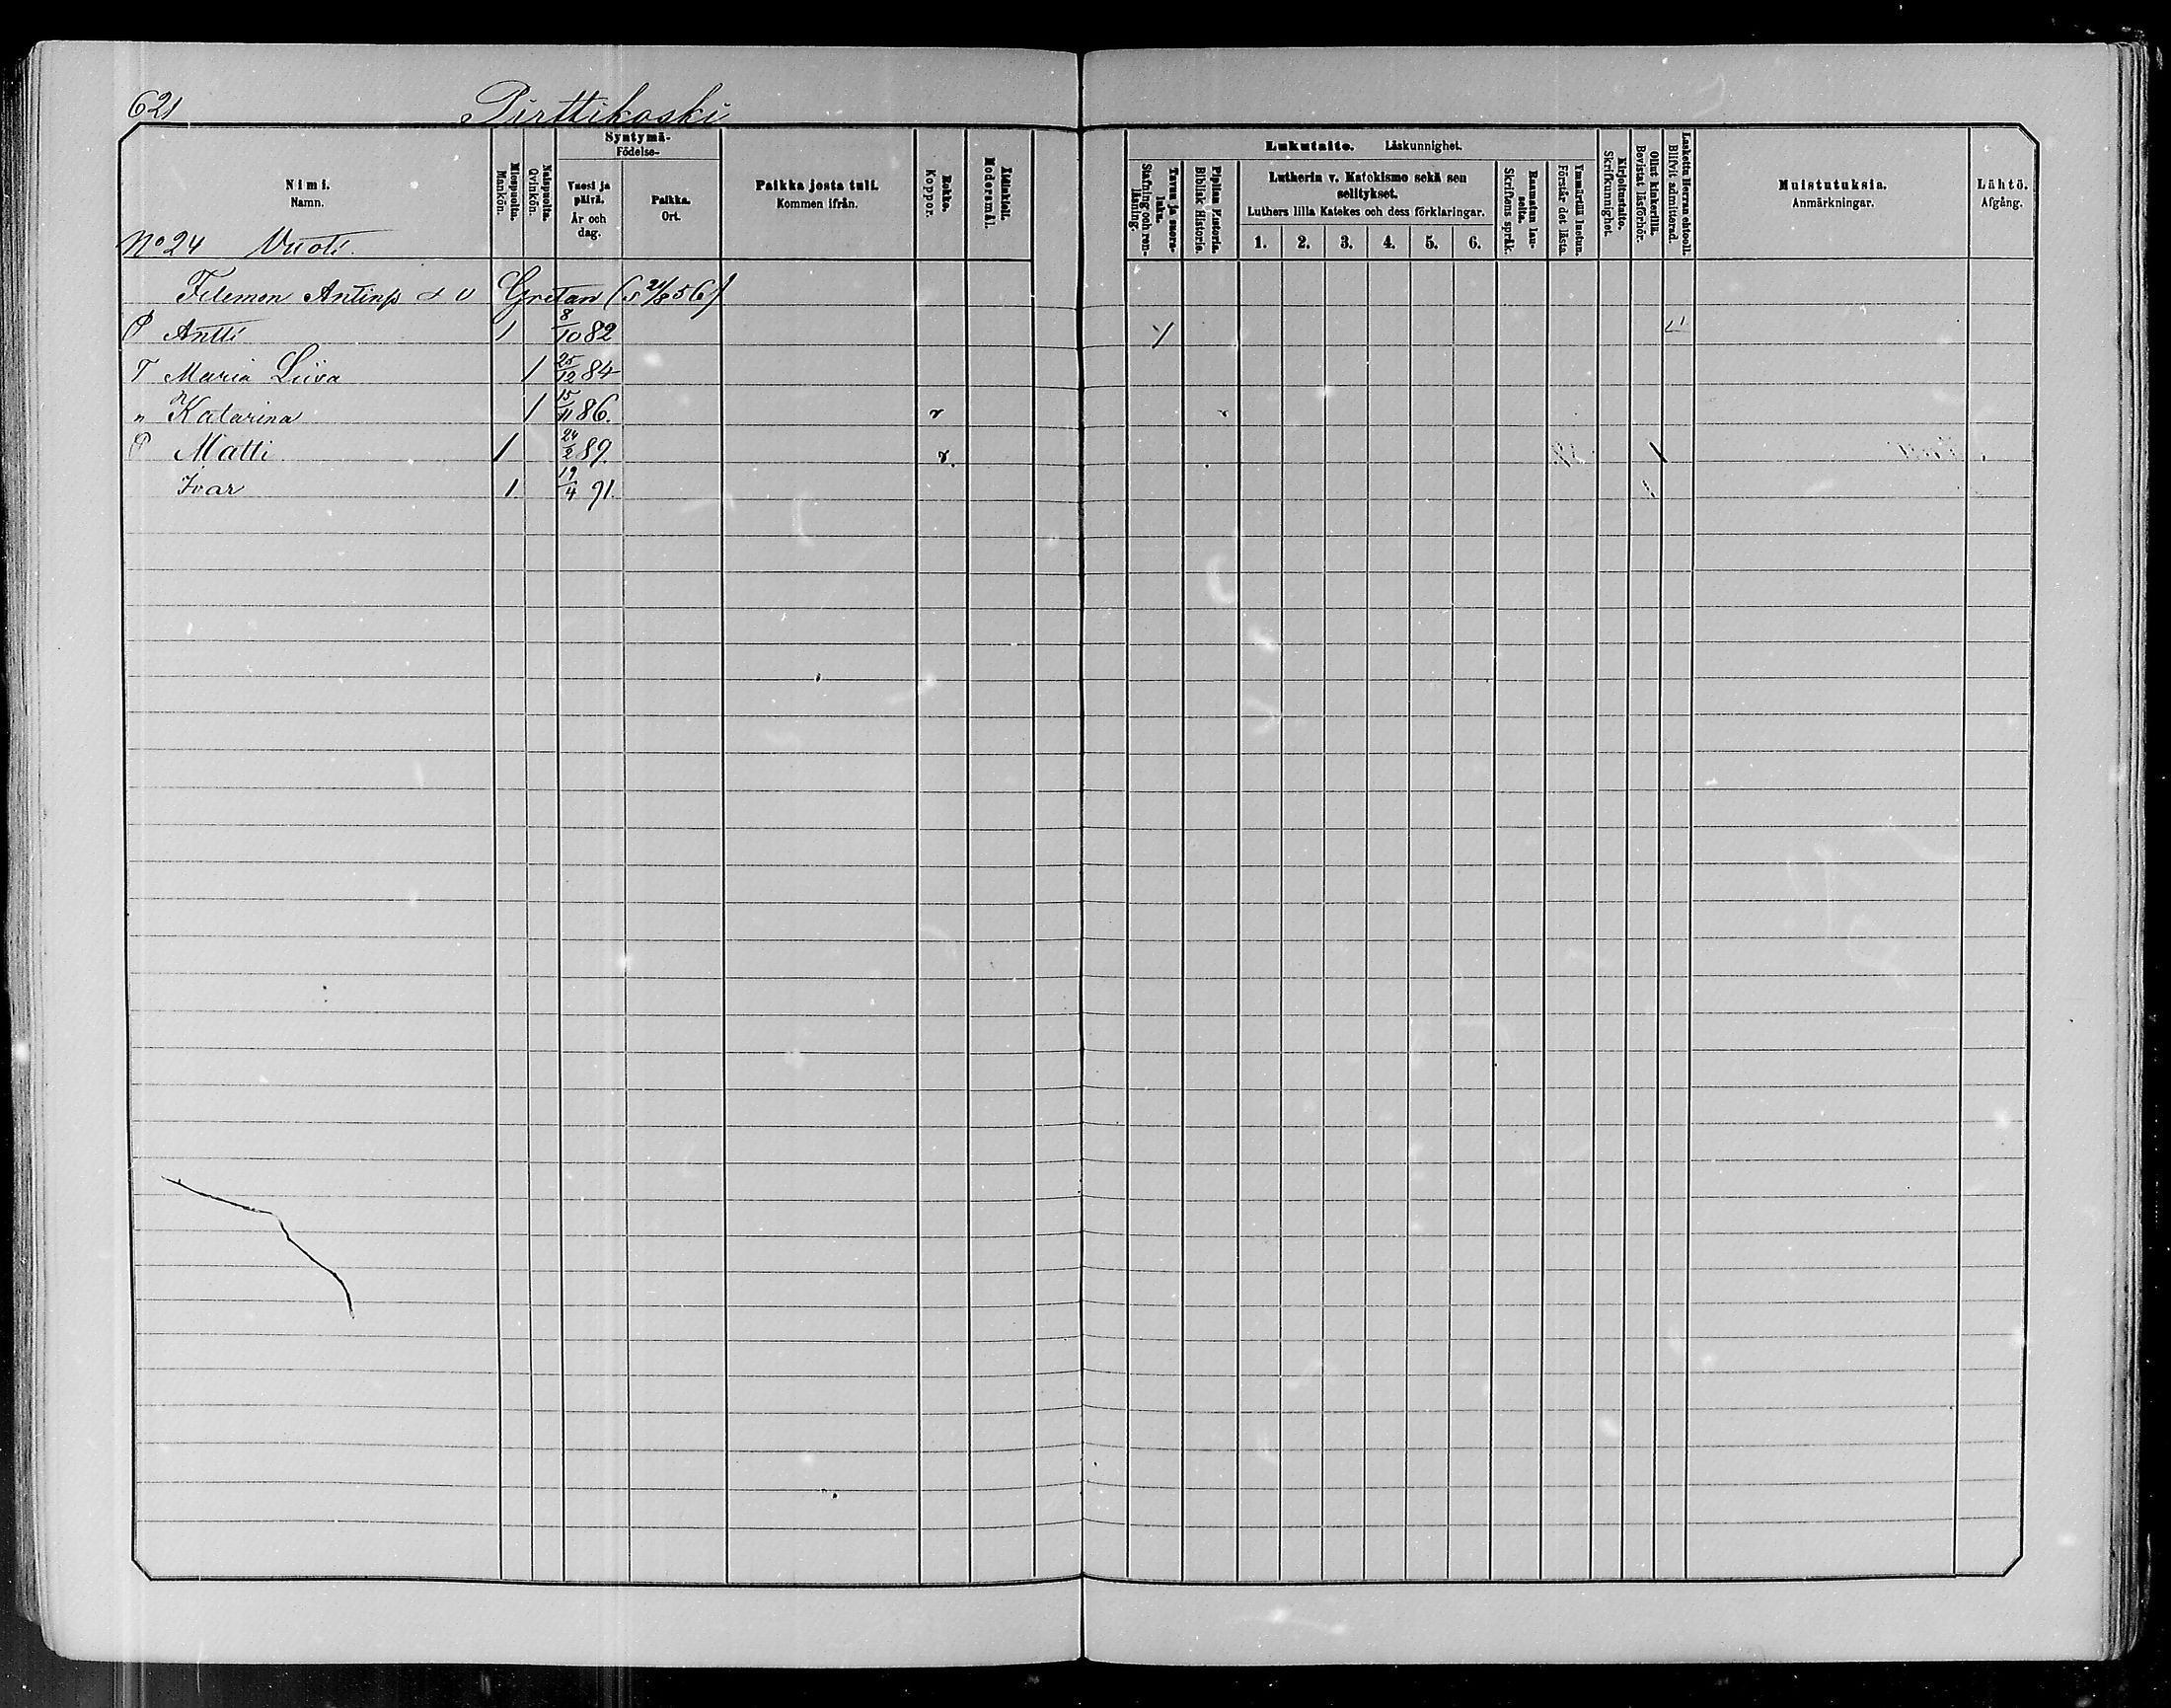 621 Pirttikoski
Nimi.
Namn.
Miespuolta.
Mankön.
Naispuolta.
Qvinkön.
Syntymä-
Födelse-
Vuosi ja päivä.
År och dag.
Paikka.
Ort.
Paikka josta tuli.
Kommen ifrån.
Rokko.
Koppor.
Äidinkieli.
Modersmål.
Lukutaito. Läskunnighet.
Tavuu ja suora-luku.
Stafning och ren-läsning.
Piplian Historia.
Biblisk Historie.
Lutherin v. Katekismo sekä sen
selitykset.
Luthers lilla Katekes och dess förklaringar.
1. 2. 3. 4. 5. 6.
Raamatun lau-seita.
Skriftens språk.
Ymmärtää luetun.
Förstår det lästa.
Kirjoitustaito.
Skrifkunnighet.
Ollut kinkerillä.
Bevistat läsförhör.
Laskettu Herran ehtooll.
Blifvit admitterad.
Muistutuksia.
Anmärkningar.
Lähtö.
Afgång.
No 24 Vuoti.
Filemon Antinp d U Gretan (s 21/8 56)
P Antti 1 8/10 82
T Maria Liisa 1 25/12 84
" Katarina 1 15/11 86. r
P Matti 1 24/2 89. r.
Ivar 1 19/4 91.